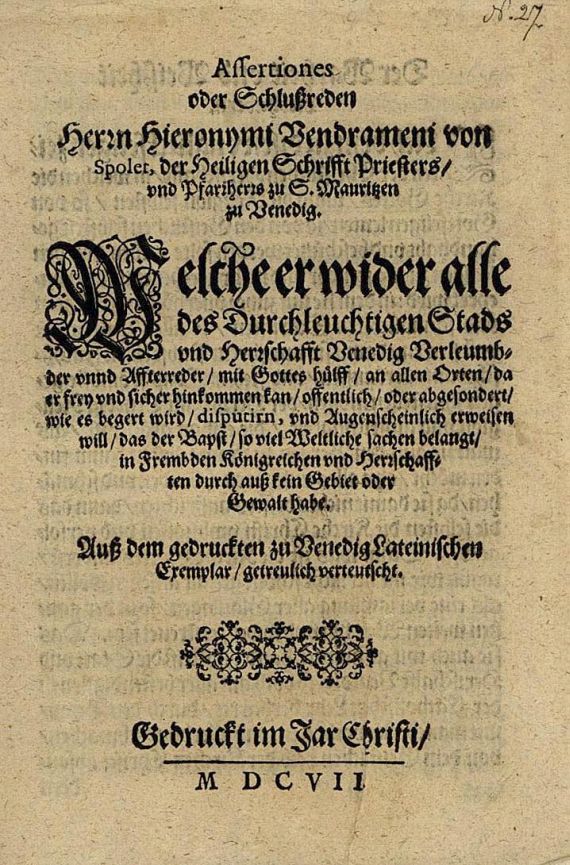 N. 27.
Assertiones
oder Schlußreden
Herrn Hieronymi Vendrameni von
Spolet, der Heiligen Schrifft Priesters/
vnd Pfarrherrs zu S. Mauritzen
zu Venedig.
Welche er wider alle
des Durchleuchtigen Stads
vnd Herrschafft Venedig Verleumb-
der vnnd Affterreder/ mit Gottes hülff/ an allen Orten/ da
er frey vnd sicher hinkommen kan/ offentlich/ oder abgesondert/
wie es begert wird/ disputirn, vnd Augenscheinlich erweisen
will/ das der Bapst/ so viel Weltliche sachen belangt/
in Frembden Königreichen vnd Herrschaff-
ten durch auß kein Gebiet oder
Gewalt habe.
Auß dem gedruckten zu Venedig Lateinischen
Exemplar/ getreulich verteutscht.
Gedruckt im Jar Christi/
M DCVII